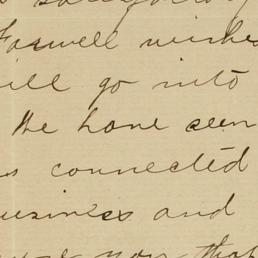 Farwell wishes
ill go into
the have seen
s connected
usiness and
you that